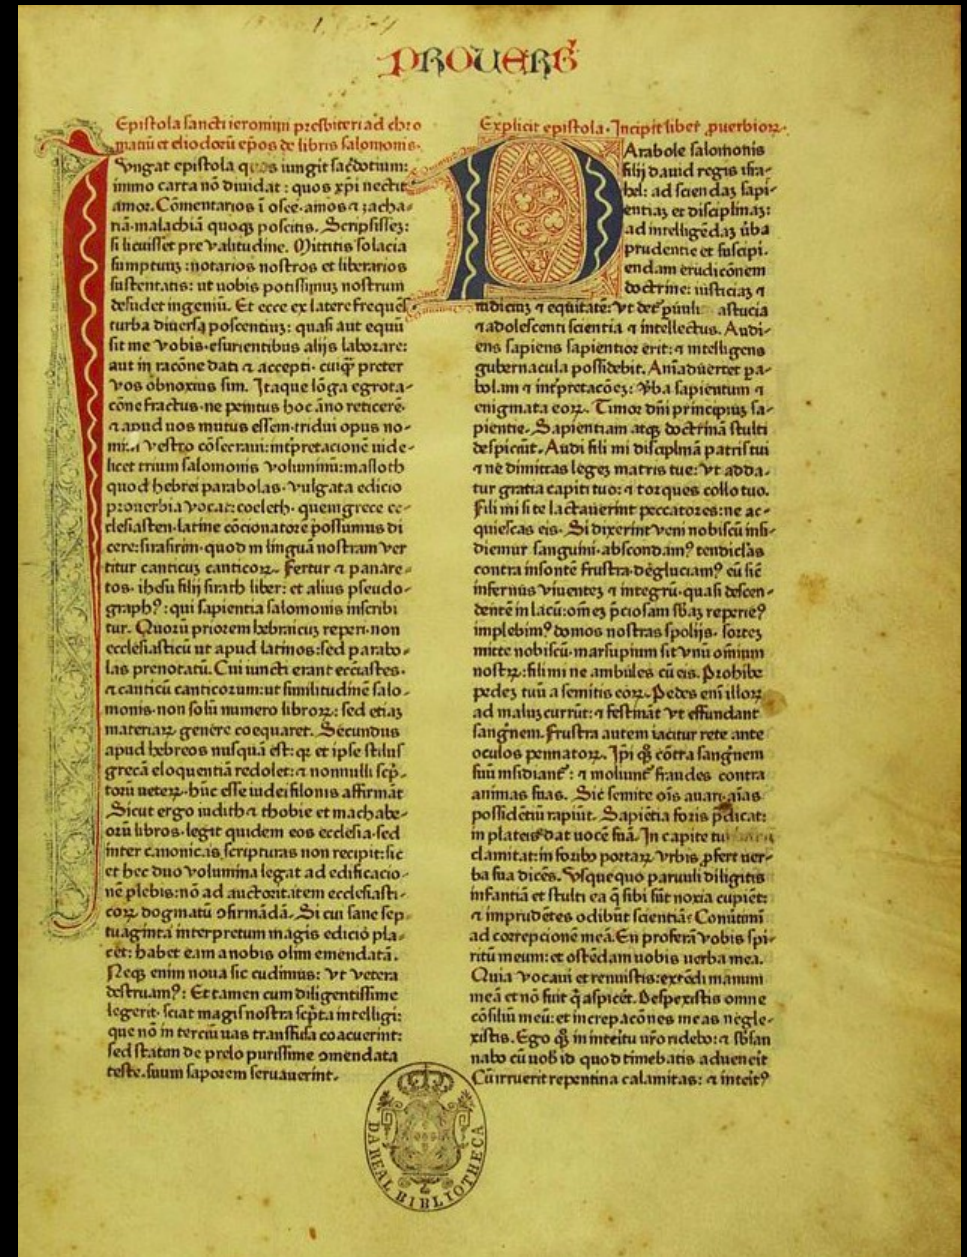 PROUERB
Epistola sancti ieronimi presbiteri ad chro
matiū et eliodorū ep̄os de libris salomonis.
Vngat epistola quos iungit sac̄dotium:
immo carta nō diuidat: quos xp̄i nectit
amor. Cōmentarios ī osee. amos ⁊ zacha-
riā. malachiā quoqꝫ poscitis. Scripsissēꝫ:
si licuisset pre valitudine. Mittitis solacia
sumptuuꝫ: notarios nostros et librarios
sustentatis: ut uobis potissimuꝫ nostrum
desudet ingeniū. Et ecce ex latere frequēs
turba diuersa poscentiuꝫ: quasi aut equū
sit me vobis. esurientibus alijs laborare:
aut in racōne dati ⁊ accepti. cuiqꝫ preter
vos obnoxius sim. Itaque lōga egrota-
cōne fractus. ne penitus hoc āno reticerē.
⁊ apud uos mutus essem. tridui opus no-
mini vestro cōsecraui: int̄pretacionē uide-
licet trium salomonis voluminū: masloth
quod hebrei parabolas. vulgata edicio
prouerbia vocat: coeleth. quem grece ec-
clesiasten. latine cōcionatorē possumus di
cere: sirasirim. quod in linguā nostram ver
titur canticuꝫ canticoꝝ. Fertur ⁊ panare-
tos. ihesu filij sirach liber: et alius pseudo-
graphꝰ: qui sapientia salomonis inscribi
tur. Quorū priorem hebraicuꝫ reperi. non
ecclesiasticū ut apud latinos: sed parabo-
las prenotatū. Cui iuncti erant ecc̄iastes.
⁊ canticū canticorum: ut similitudinē salo-
monis. non solū numero libroꝝ: sed etiaꝫ
materiaꝝ genere coequaret. Secundus
apud hebreos nusquā est: qꝛ et ipse stilus
grecā eloquentiā redolet: ⁊ nonnulli sc̄p-
torū ueteꝝ. hūc esse iudei filonis affirmāt
Sicut ergo iudith ⁊ thobie et machabe-
orū libros. legit quidem eos ecclesia. sed
inter canonicas scripturas non recipit: sic
et hec duo volumina legat ad edificacio-
nē plebis: nō ad auctoritatem ecclesiasti-
coꝝ dogmatū ꝯfirmādā. Si cui sane sep
tuaginta interpretum magis edicio pla-
cet: habet eam a nobis olim emendatā.
Neqꝫ enim noua sic cudimus: vt vetera
destruamꝰ: Et tamen cum diligentissime
legerit. sciat magis nostra sc̄pta intelligi:
que nō in terciū uas transfusa coacuerint:
sed statim de prelo purissime ɔmendata
teste. suum saporem seruauerint.
Explicit epistola. Incipit liber ꝓuerbioꝝ.
PArabole salomonis
filij dauid regis isra-
hel: ad sciendaꝫ sapi-
entiaꝫ et disciplinaꝫ:
ad intelligēdaꝫ v̄ba
prudentie et suscipi.
endam erudicōnem
doctrine: iusticiaꝫ ⁊
iudiciuꝫ ⁊ equitatē: Vt det̉ ꝑuulis astucia
⁊ adolescenti scientia ⁊ intellectus. Audi-
ens sapiens sapientior erit: ⁊ intelligens
gubernacula possidebit. Aniaduertet pa-
bolam ⁊ int̄pretacōeꝫ: v̄ba sapientum ⁊
enigmata eoꝝ. Timor dn̄i principiuꝫ sa-
pientie. Sapientiam atqꝫ doctrinā stulti
despiciūt. Audi fili mi disciplinā patris tui
⁊ ne dimittas legeꝫ matris tue: vt adda-
tur gratia capiti tuo: ⁊ torques collo tuo.
Fili mi si te lactauerint peccatores: ne ac-
quiescas eis. Si dixerint veni nobiscū insi-
diemur sanguini. abscondamꝰ tendiclas
contra insontē frustra. deglucianꝰ eū sic̄
infernus viuenteꝫ ⁊ integrū. quasi descen-
dentē in lacū: om̄eꝫ p̄ciosam sbaꝫ reperieꝰ
implebimꝰ domos nostras spolijs. sorteꝫ
mitte nobiscū. marsupium sit vnū omnium
nostꝝ: fili mi ne ambules cū eis. Prohibe
pedeꝫ tuū a semitis eoꝝ. Pedes eni illoꝝ
ad maluꝫ currūt: ⁊ festināt vt effundant
sanguinem. Frustra autem iacitur rete ante
oculos pennatoꝝ. Ip̄i qꝫ cōtra sanguinem
suū insidiant̉: ⁊ moliunt̉ fraudes contra
animas suas. Sic semite oīs auari. aīas
possidētiū rapiūt. Sapiētia foris p̄dicat:
in plateis dat uocē suā. In capite
clamitat: in foribꝰ portaꝝ vrbis ꝓfert uer-
ba sua dicēs. Vsquequo paruuli diligitis
infantiā et stulti ea q̄ sibi sūt noxia cupiēt:
⁊ imprudētes odibūt scientiā: Conūtimi
ad correpcionē meā. En proferā vobis spi-
ritū meum: et ostēdam uobis uerba mea.
Quia vocaui et rennistis: extēdi manum
meā et nō fuit q̄ aspicet. Despexistis omne
cōsiliū meū: et increpacōnes meas negle-
xistis. Ego qꝫ in interitu vr̄o ridebo: ⁊ sbsan
nabo cū uob̄ id quod timebatis aduenerit
Cū irruerit repentina calamitas: ⁊ interitꝰ
DA REAL BIBLIOTHECA